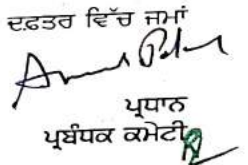 ਦਫ਼ਤਰ ਵਿੱਚ ਜਮਾਂ
ਪ੍ਰਧਾਨ
ਪ੍ਰਬੰਧਕ ਕਮੇਟੀ